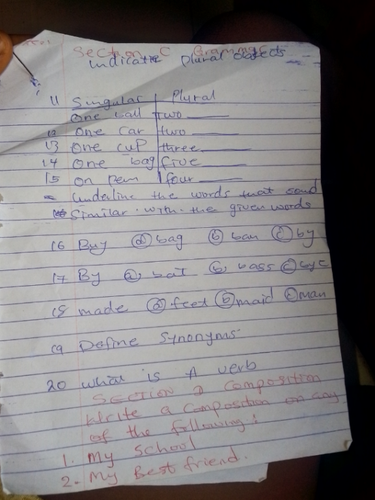 Section C Grammar
indicate plural objects
11 Singular Plural
One ball two
12 One car two
13 One cup three
14 One bag five
15 on pen four
underline the words that sound
Similar with the given words
16 Buy (a) bag (b) ban (c) by
17 By (a) bat (b) bass (c) bye
18 made (a) feet (b) maid (c) man
19 Define Synonyms
20 what is A verb
SECTION D Composition
Write a composition on any
of the following:
1. My School
2. My Best friend.